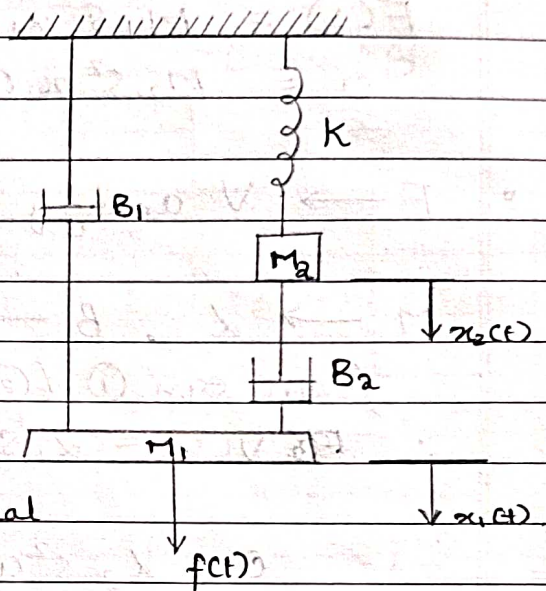 K
B1
M2
x2(t)
B2
M1
al
x1(t)
f(t)